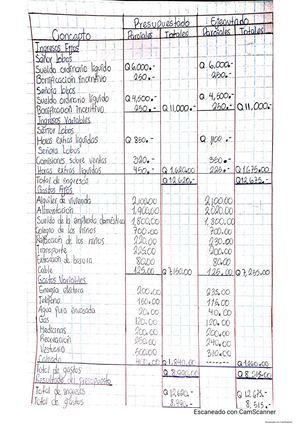 Presupuestado Ejecutado
Concepto Parciales Totales Parciales Totales
Ingresos Fijos
Señor Lobos
Sueldo ordinario líquido Q 6,000.- Q 6,000.-
Bonificación Incentivo 250.- 250.-
Señora Lobos
Sueldo ordinario líquido Q 4,500.- Q 4,500.-
Bonificación Incentivo 250.- Q 11,000.- 250.- Q 11,000.-
Ingresos Variables
Señor Lobos
Horas extras líquidas Q 850.- Q 1100.-
Señora Lobos
Comisiones sobre ventas 320.- 350.-
Horas extras líquidas 450.- Q 1,620.00 225.- Q 1,675.00
Total de ingresos Q 12,620.- Q 12,675.-
Gastos Fijos
Alquiler de vivienda 2,100.00 2,100.00
Alimentación 1,900.00 2,020.00
Sueldo de la empleada doméstica 1,800.00 1,800.00
Colegio de los niños 700.00 700.00
Refacción de los niños 220.00 230.00
Transporte 225.00 200.00
Extracción de basura 80.00 80.00
Cable 125.00 Q 7,150.00 125.00 Q 7,255.00
Gastos Variables
Energía eléctrica 200.00 235.00
Teléfono 150.00 115.00
Agua pura envasada 20.00 40.00
Gas 120.00 120.00
Medicinas 200.00 200.00
Recreación 250.00 240.00
Vestuario 500.00 310.00
Calzado 400.00 Q 1,840.00 Q 1260.00
Total de gastos Q 8,990.00 Q 8,515.00
Resultado del presupuesto
Total de ingresos Q 12,620.- Q 12,675.-
Total de gastos 8,990.- 8,515.-
Escaneado con CamScanner